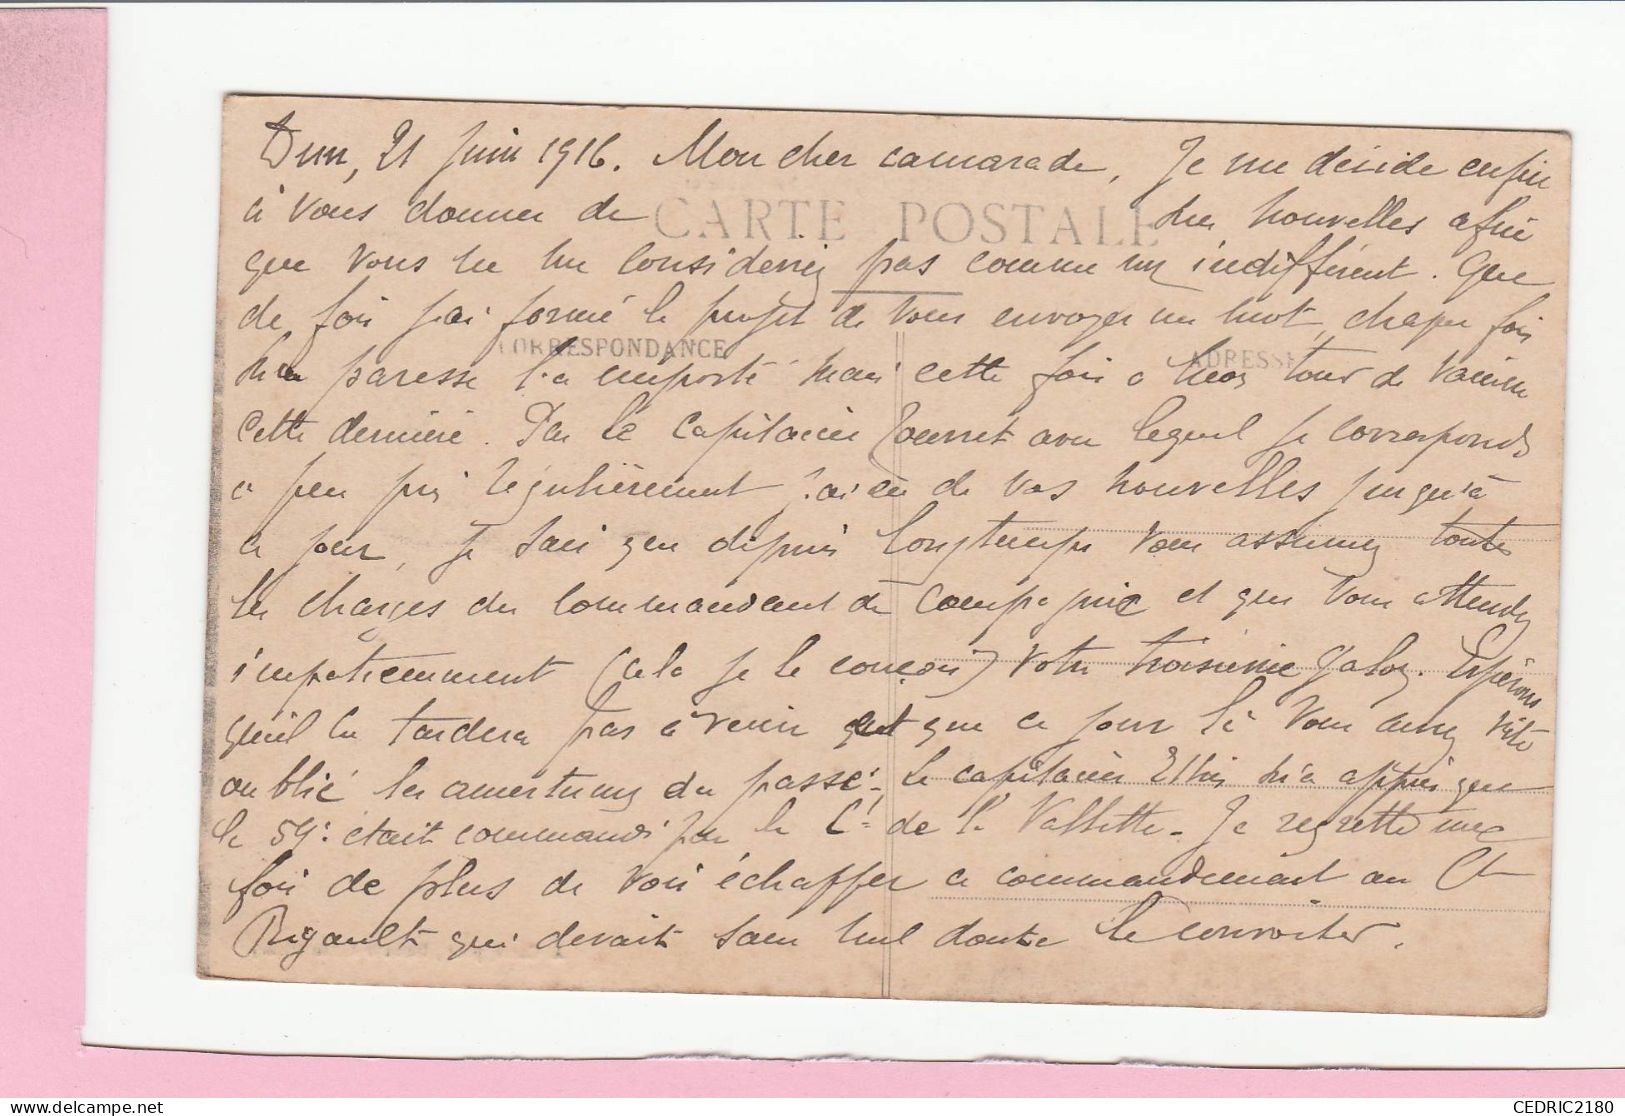 Dun, 21 Juin 1916. Mon cher camarade, Je me décide enfin
à vous donner de mes nouvelles afin
CARTE POSTALE
que vous ne me considériez pas comme un indifférent. Que
de fois j'ai formé le projet de vous envoyer un mot, chaque fois
CORRESPONDANCE
ADRESSE
ma paresse l'a emporté mais cette fois a mon tour de vaincre
cette dernière. Par le Capitaine avec lequel je corresponds
a peu près régulièrement j'ai eu de vos nouvelles jusqu'à
ce jour, je sais que depuis longtemps vous assumez toutes
les charges du commandant de compagnie et que vous attendez
impatiemment (cela je le conçois) votre troisième galon. Espérons
qu'il ne tardera pas à venir et que ce jour là vous aurez vite
oublié les amertumes du passé. Le capitaine m'a appris que
le 59e était commandé par le Ct de la Vallette. Je regrette une
fois de plus de voir échapper ce commandement au Ct
Rigault qui devait sans nul doute le convoiter.
CEDRIC2180